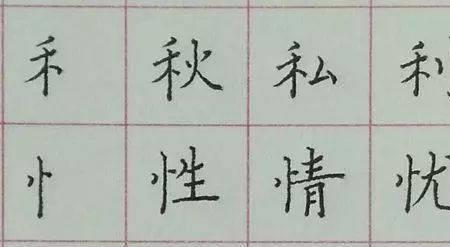 禾 秋 私 利
忄 性 情 忧